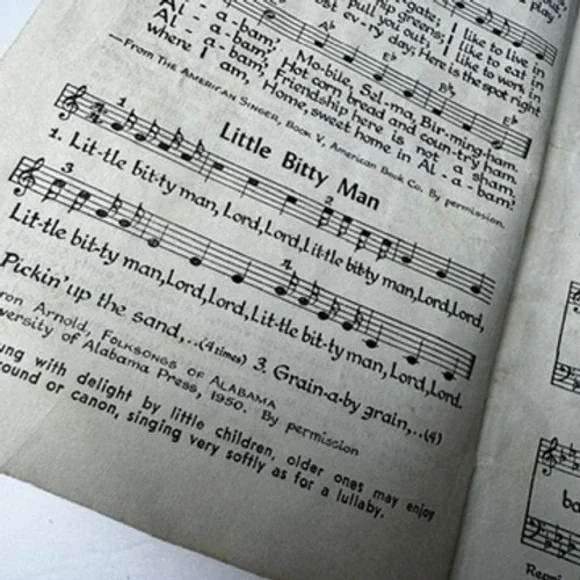 -gate; I like to live in
-ship greens; I like to eat in
pull you out; I like to work in
-ost ev-ry day; Here is the spot right
Al - a-bam', Mo-bile, Sel-ma, Bir-ming-ham.
Al - a-bam', Hot corn bread and coun-try ham.
Al - a-bam', Friendship here is not a sham.
where I am, Home, sweet home in Al-a-bam!
—From THE AMERICAN SINGER, BOOK V, American Book Co. By permission.
Little Bitty Man
1 2
1. Lit-tle bit-ty man, Lord, Lord, Lit-tle bit-ty man, Lord, Lord,
3 4
Lit-tle bit-ty man, Lord, Lord, Lit-tle bit-ty man, Lord, Lord.
Pickin' up the sand,..(4 times) 3. Grain-a-by grain,..(4)
ron Arnold, FOLKSONGS OF ALABAMA
versity of Alabama Press, 1950. By permission
ung with delight by little children, older ones may enjoy
round or canon, singing very softly as for a lullaby.